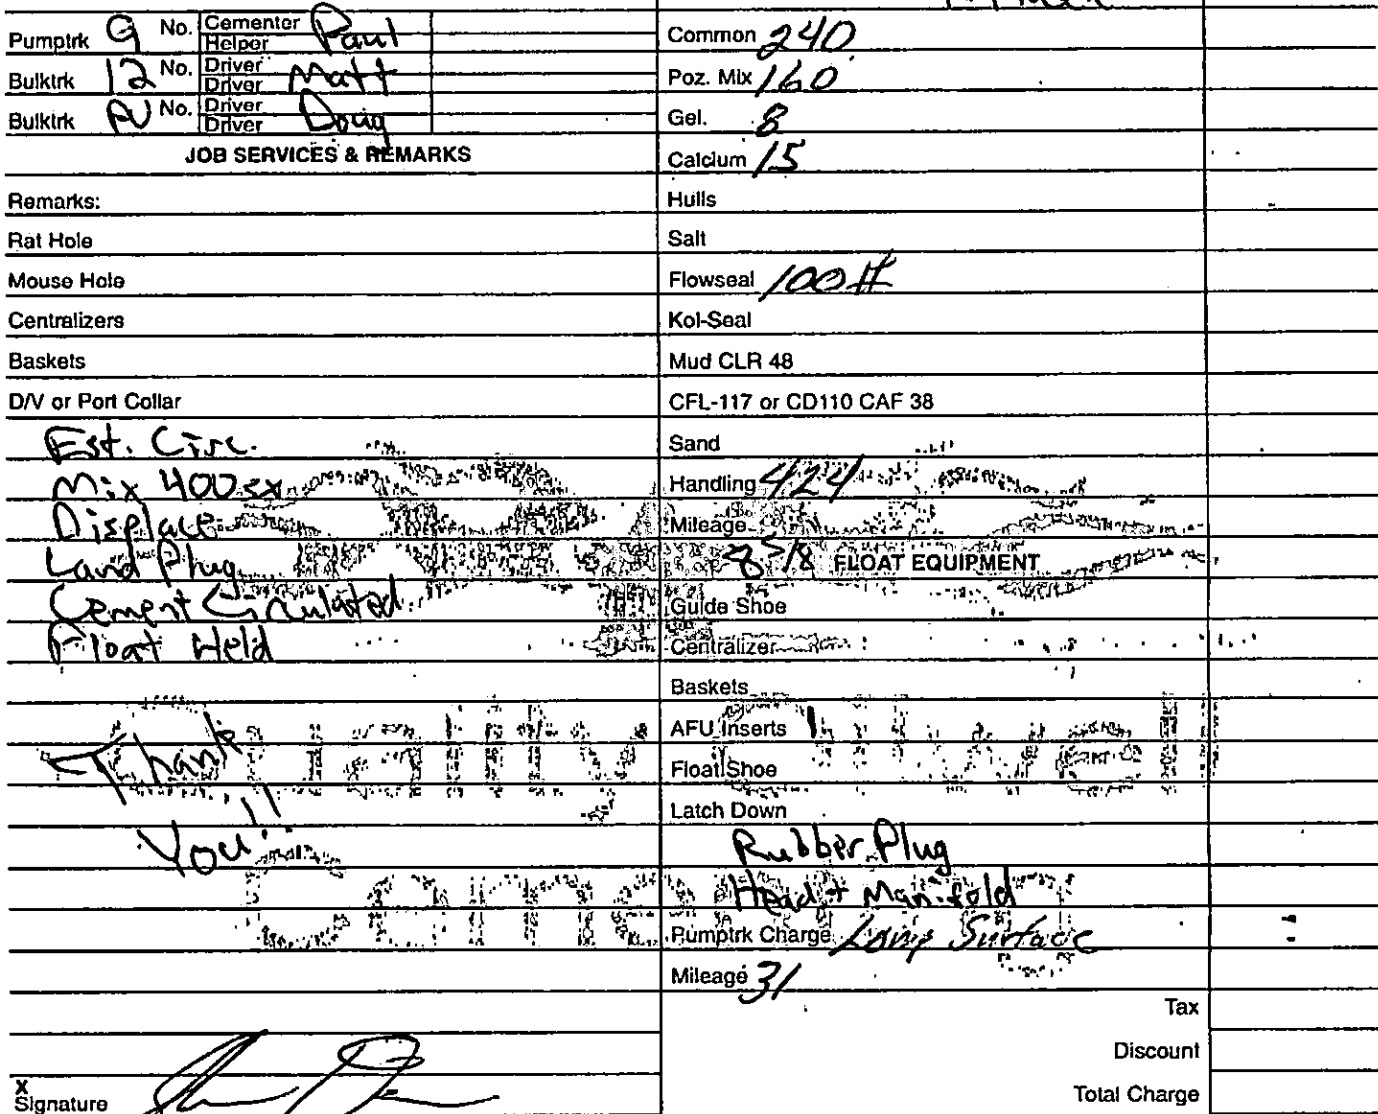 Pumptrk 9 No. Cementer Helper Paul
Bulktrk 12 No. Driver Driver Matt
Bulktrk PU No. Driver Driver Doug
JOB SERVICES & REMARKS
Remarks:
Rat Hole
Mouse Hole
Centralizers
Baskets
D/V or Port Collar
Est. Circ.
Mix 400sx
Displace
Land Plug
Cement Circulated
Float Held
Thank
You!!
X
Signature
Common 240
Poz. Mix 160
Gel. 8
Calcium 15
Hulls
Salt
Flowseal 100#
Kol-Seal
Mud CLR 48
CFL-117 or CD110 CAF 38
Sand
Handling 424
Mileage
8 5/8 FLOAT EQUIPMENT
Guide Shoe
Centralizer
Baskets
AFU Inserts 1
Float Shoe
Latch Down
Rubber Plug
Head + Manifold
Pumptrk Charge Long Surface
Mileage 31
Tax
Discount
Total Charge
Quality Oilwell
Cementing